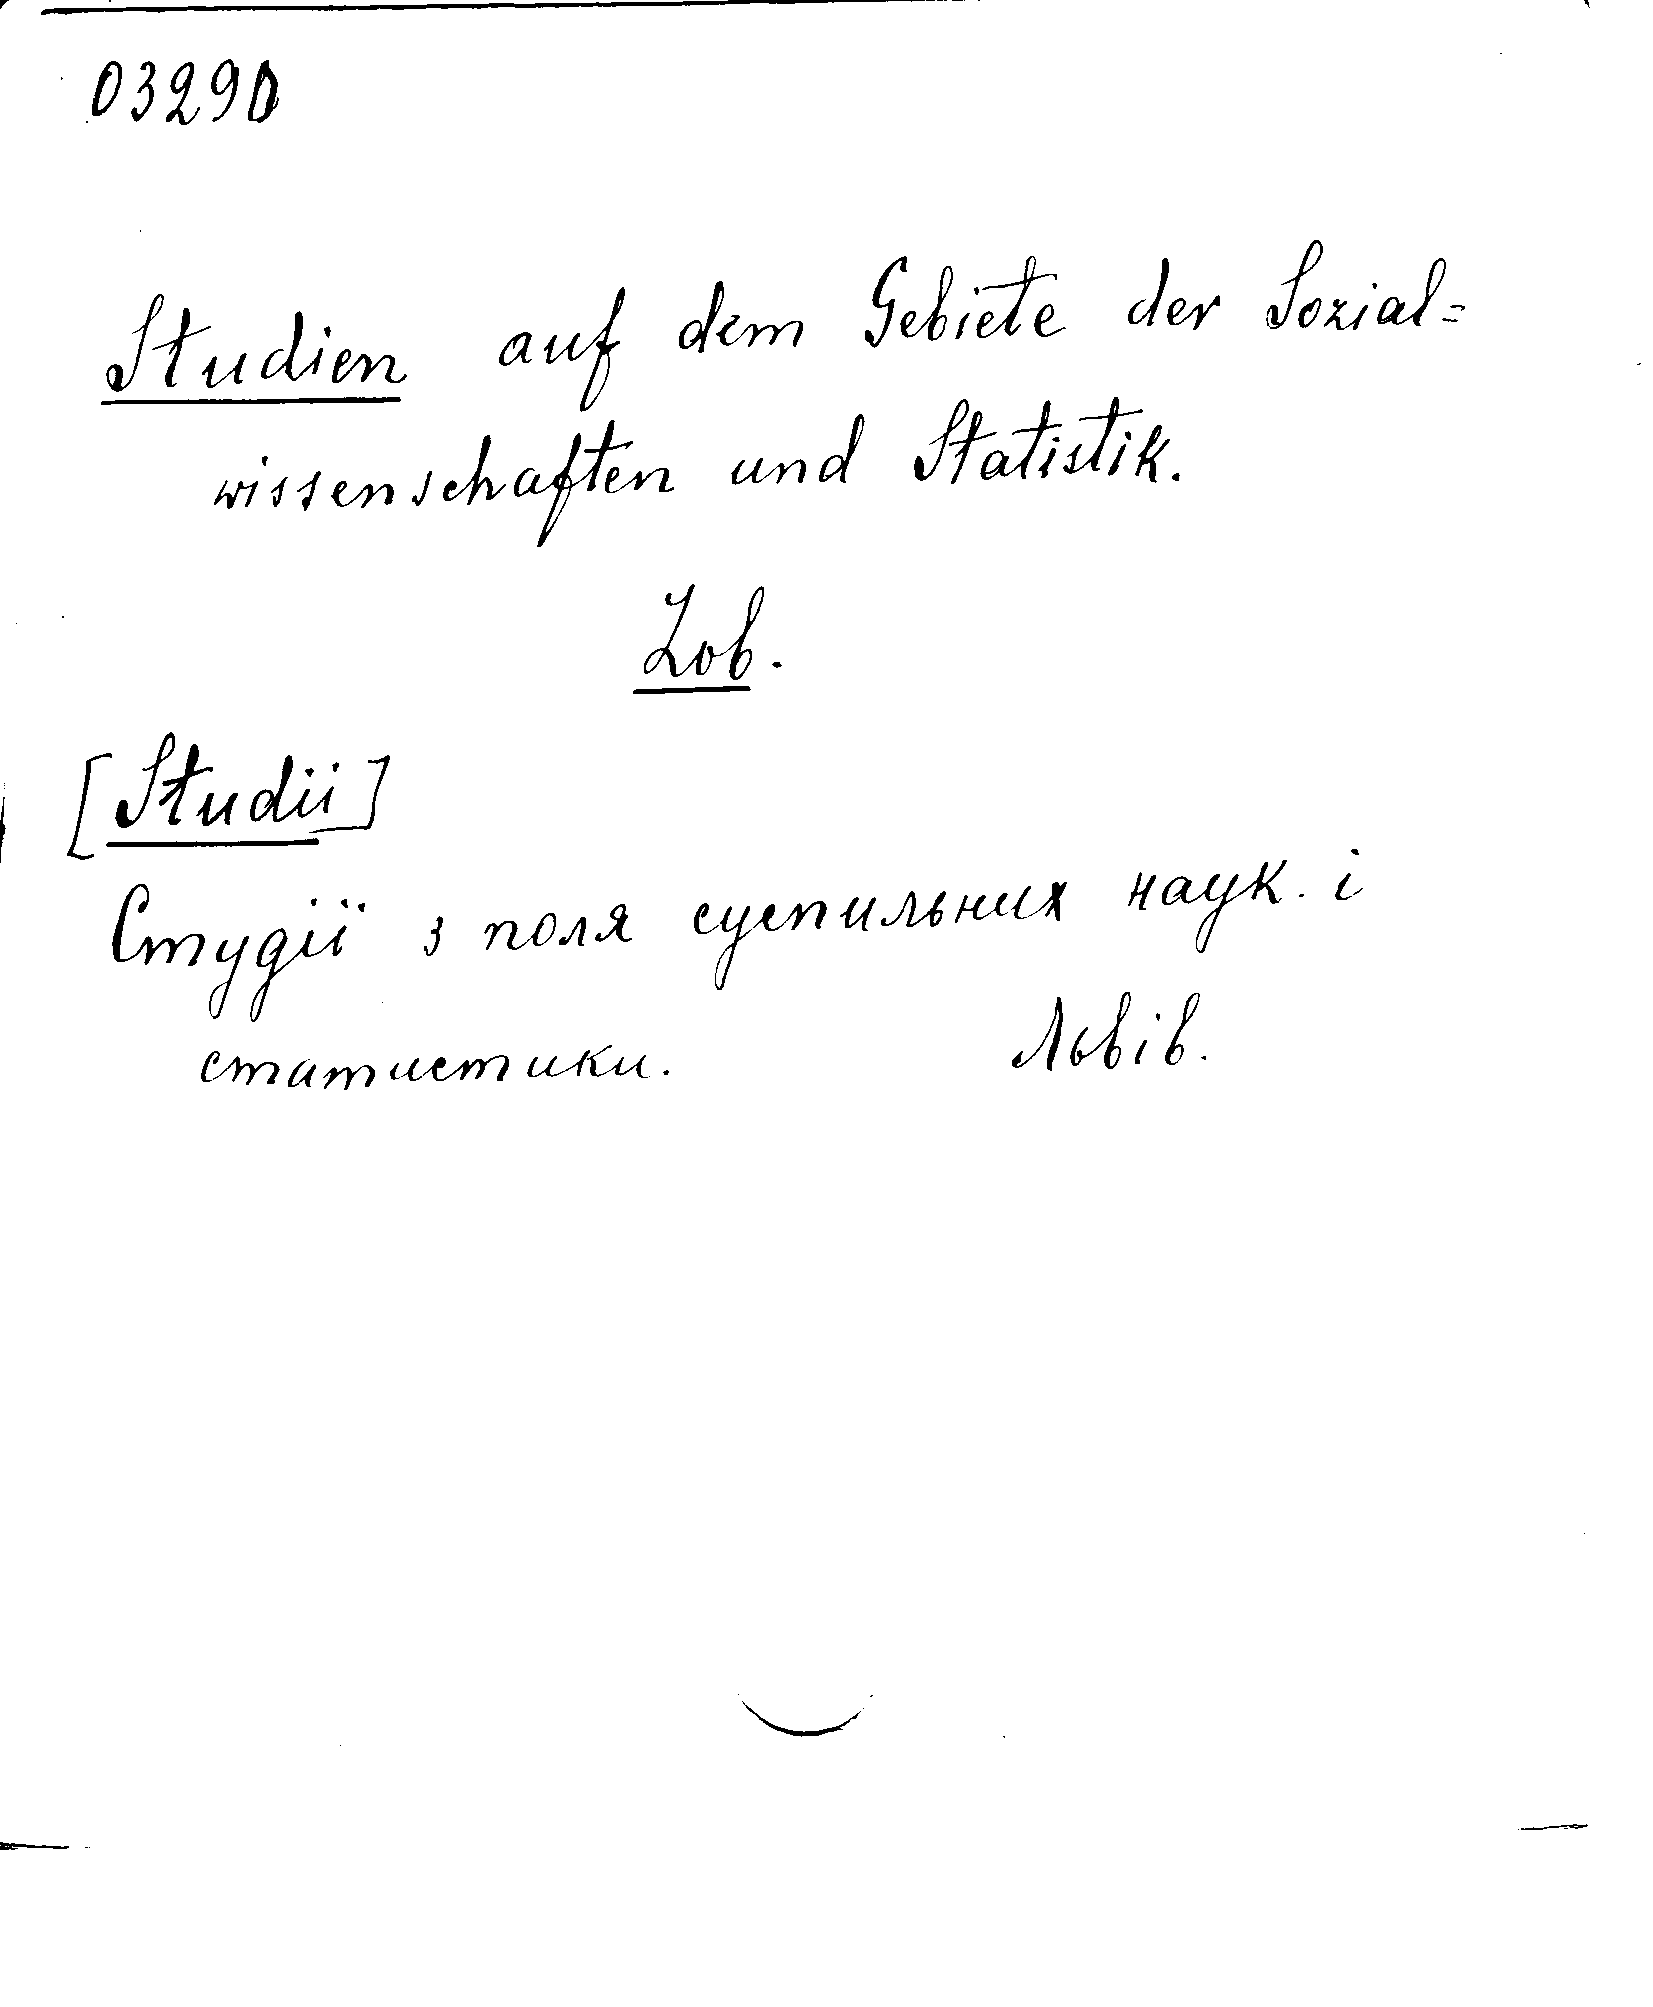 03290
Studien auf dem Gebiete der Sozial=
wissenschaften und Statistik.
Zob.
[Studii]
Студії з поля суспильних наук. і
статистики. Львів.